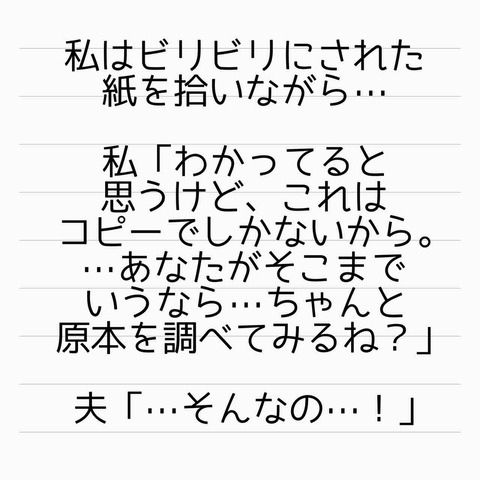 私はビリビリにされた
紙を拾いながら…
私「わかってると
思うけど、これは
コピーでしかないから。
…あなたがそこまで
いうなら…ちゃんと
原本を調べてみるね？」
夫「…そんなの…！」